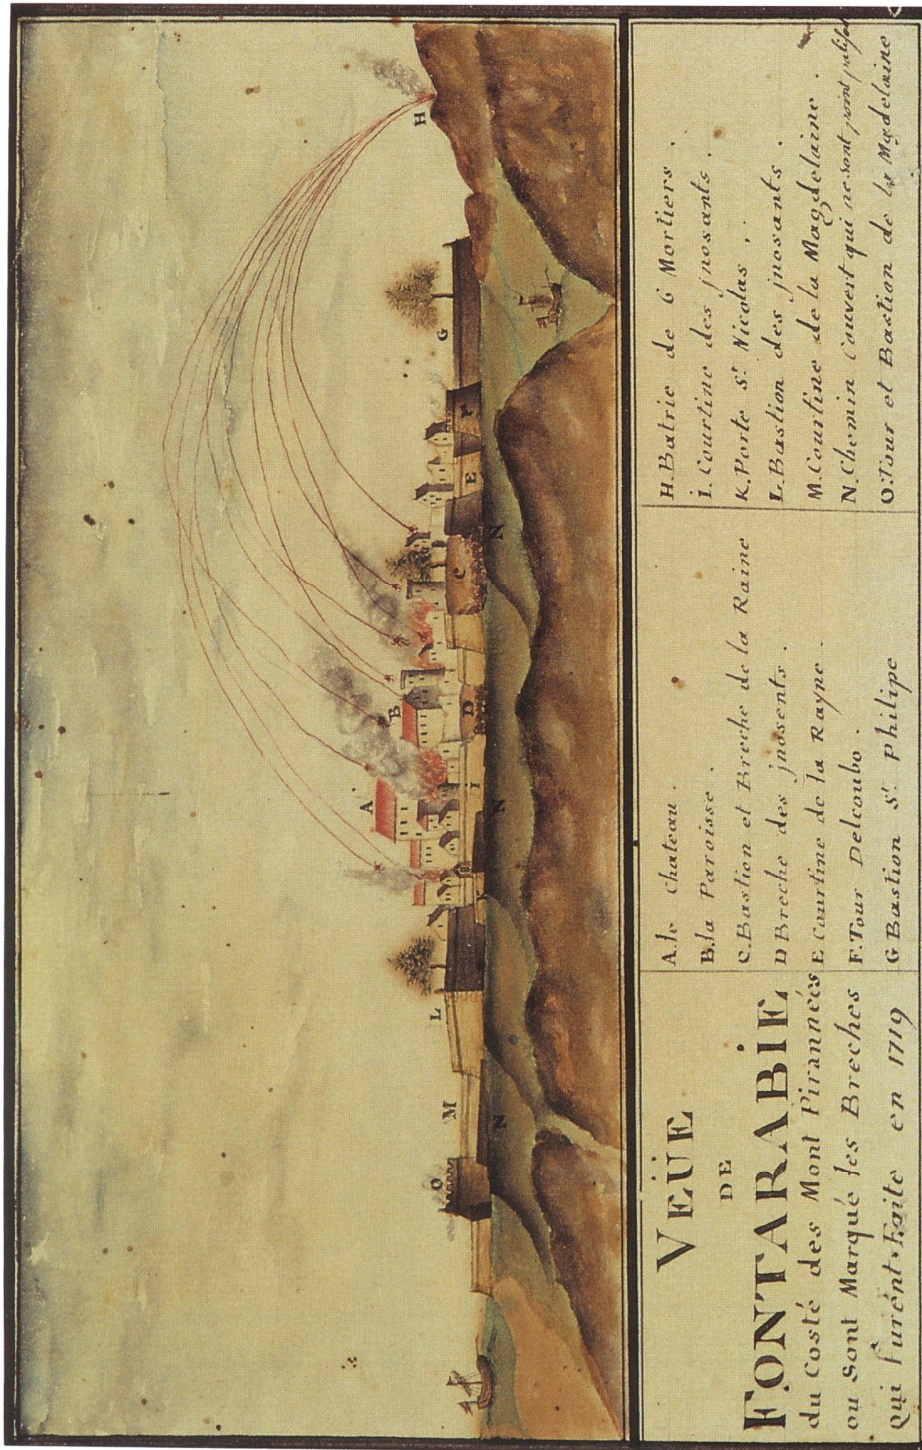 H
G
F
E
N
C
D
B
I
N
A
L
M
N
O
VEÜE
DE
FONTARABIE
du Costé des Mont Pirannées
ou sont Marqué les Breches
qui furent Faite en 1719
A. le Chateau .
B. la Paroisse .
C. Bastion et Breche de la Raine
D Breche des jnosents .
E Courtine de la Rayne .
F. Tour Delcoubo .
G Bastion St. Philipe
H. Batrie de 6 Mortiers .
i. Courtine des jnosants .
K. Porte St. Nicolas .
L. Bastion des jnosants .
M. Courtine de la Magdelaine .
N. Chemin Couvert qui ne sont point
O. Tour et Bastion de la Magdelaine